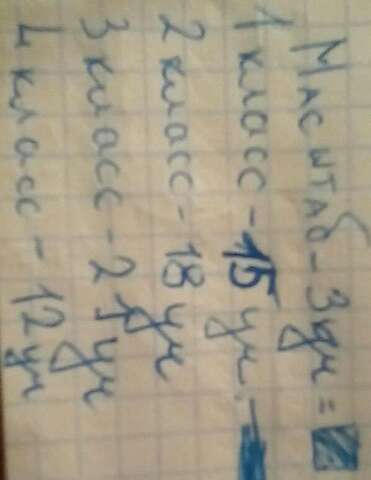 Масштаб - 3 уч =
1 класс - 15 уч. -
2 класс - 18 уч
3 класс - 21 уч
4 класс - 12 уч